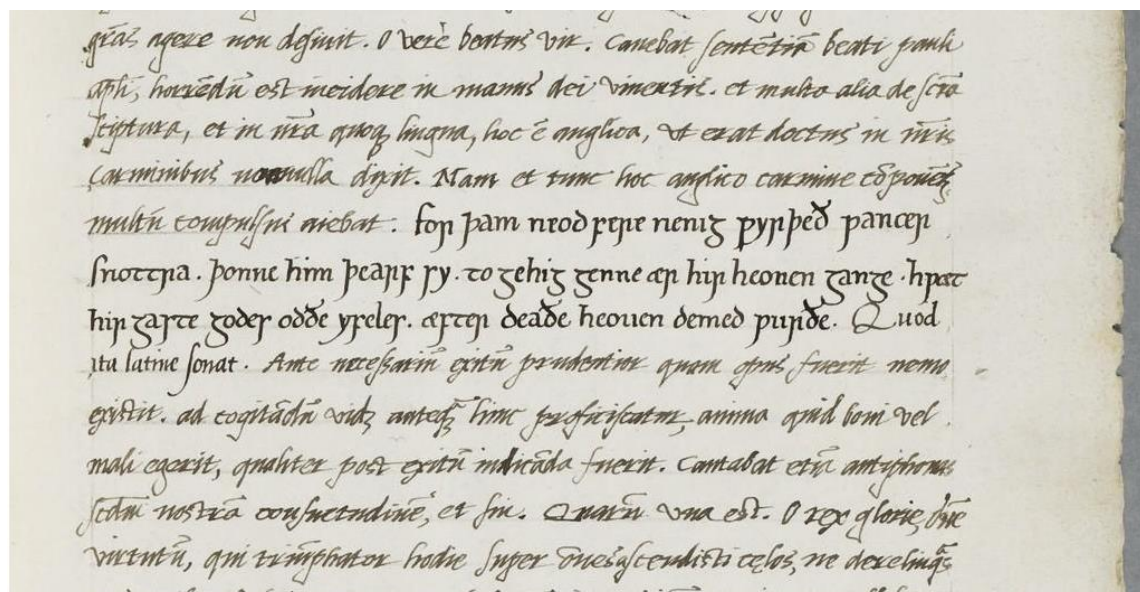 gr̄as agere non desinit. O verè beatus vir. Canebat sentẽtiã beati pauli
apl̄i, horrẽdũ est incidere in manus dei viventis. et multa alia de scr̄a
scriptura, et in nr̄a quoq; lingua, hoc ẽ anglica, ut erat doctus in nr̄is
carminibus nonnulla dixit. Nam et tunc hoc anglico carmine cõponẽs,
multũ compulsus aiebat. for þam neod fere neniȝ ƿyrþeð ƿancer
snottra. þonne him þearf sy. to ȝehiȝȝenne ær his heonen ȝanȝe. hƿæt
his ȝaste ȝodes oððe yfeles. æfter deaðe heonen demed ƿurðe. Quod
ita latine sonat. Ante necessariũ exitũ prudentior quam opus fuerit nemo
existit. ad cogitãdũ vidz anteq̃ hinc proficiscatur, anima quid boni vel
mali egerit, qualiter post exitũ iudicãda fuerit. Cantabat etiã antiphonas
scdm̄ nostrã consuetudinẽ, et sui. Quarũ una est. O rex glorie, dñe
virtutũ, qui triũphator hodie super õnes ascendisti cęlos, ne derelinq̃s